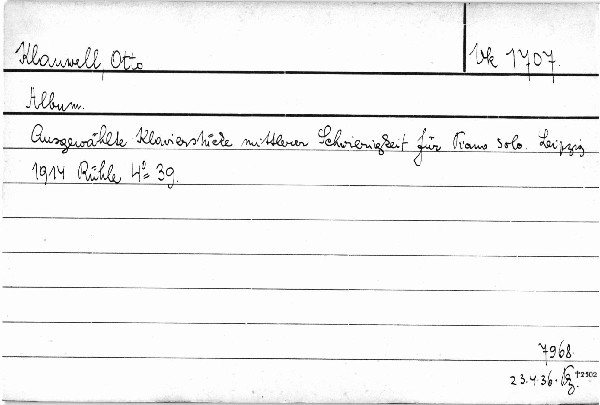 Klauwell, Otto
Vk 1707.
Album.
Ausgewählte Klavierstücke mittlerer Schwierigkeit für Piano solo. Leipzig
1914 Rühle 4° 39.
7968
23.4.36.